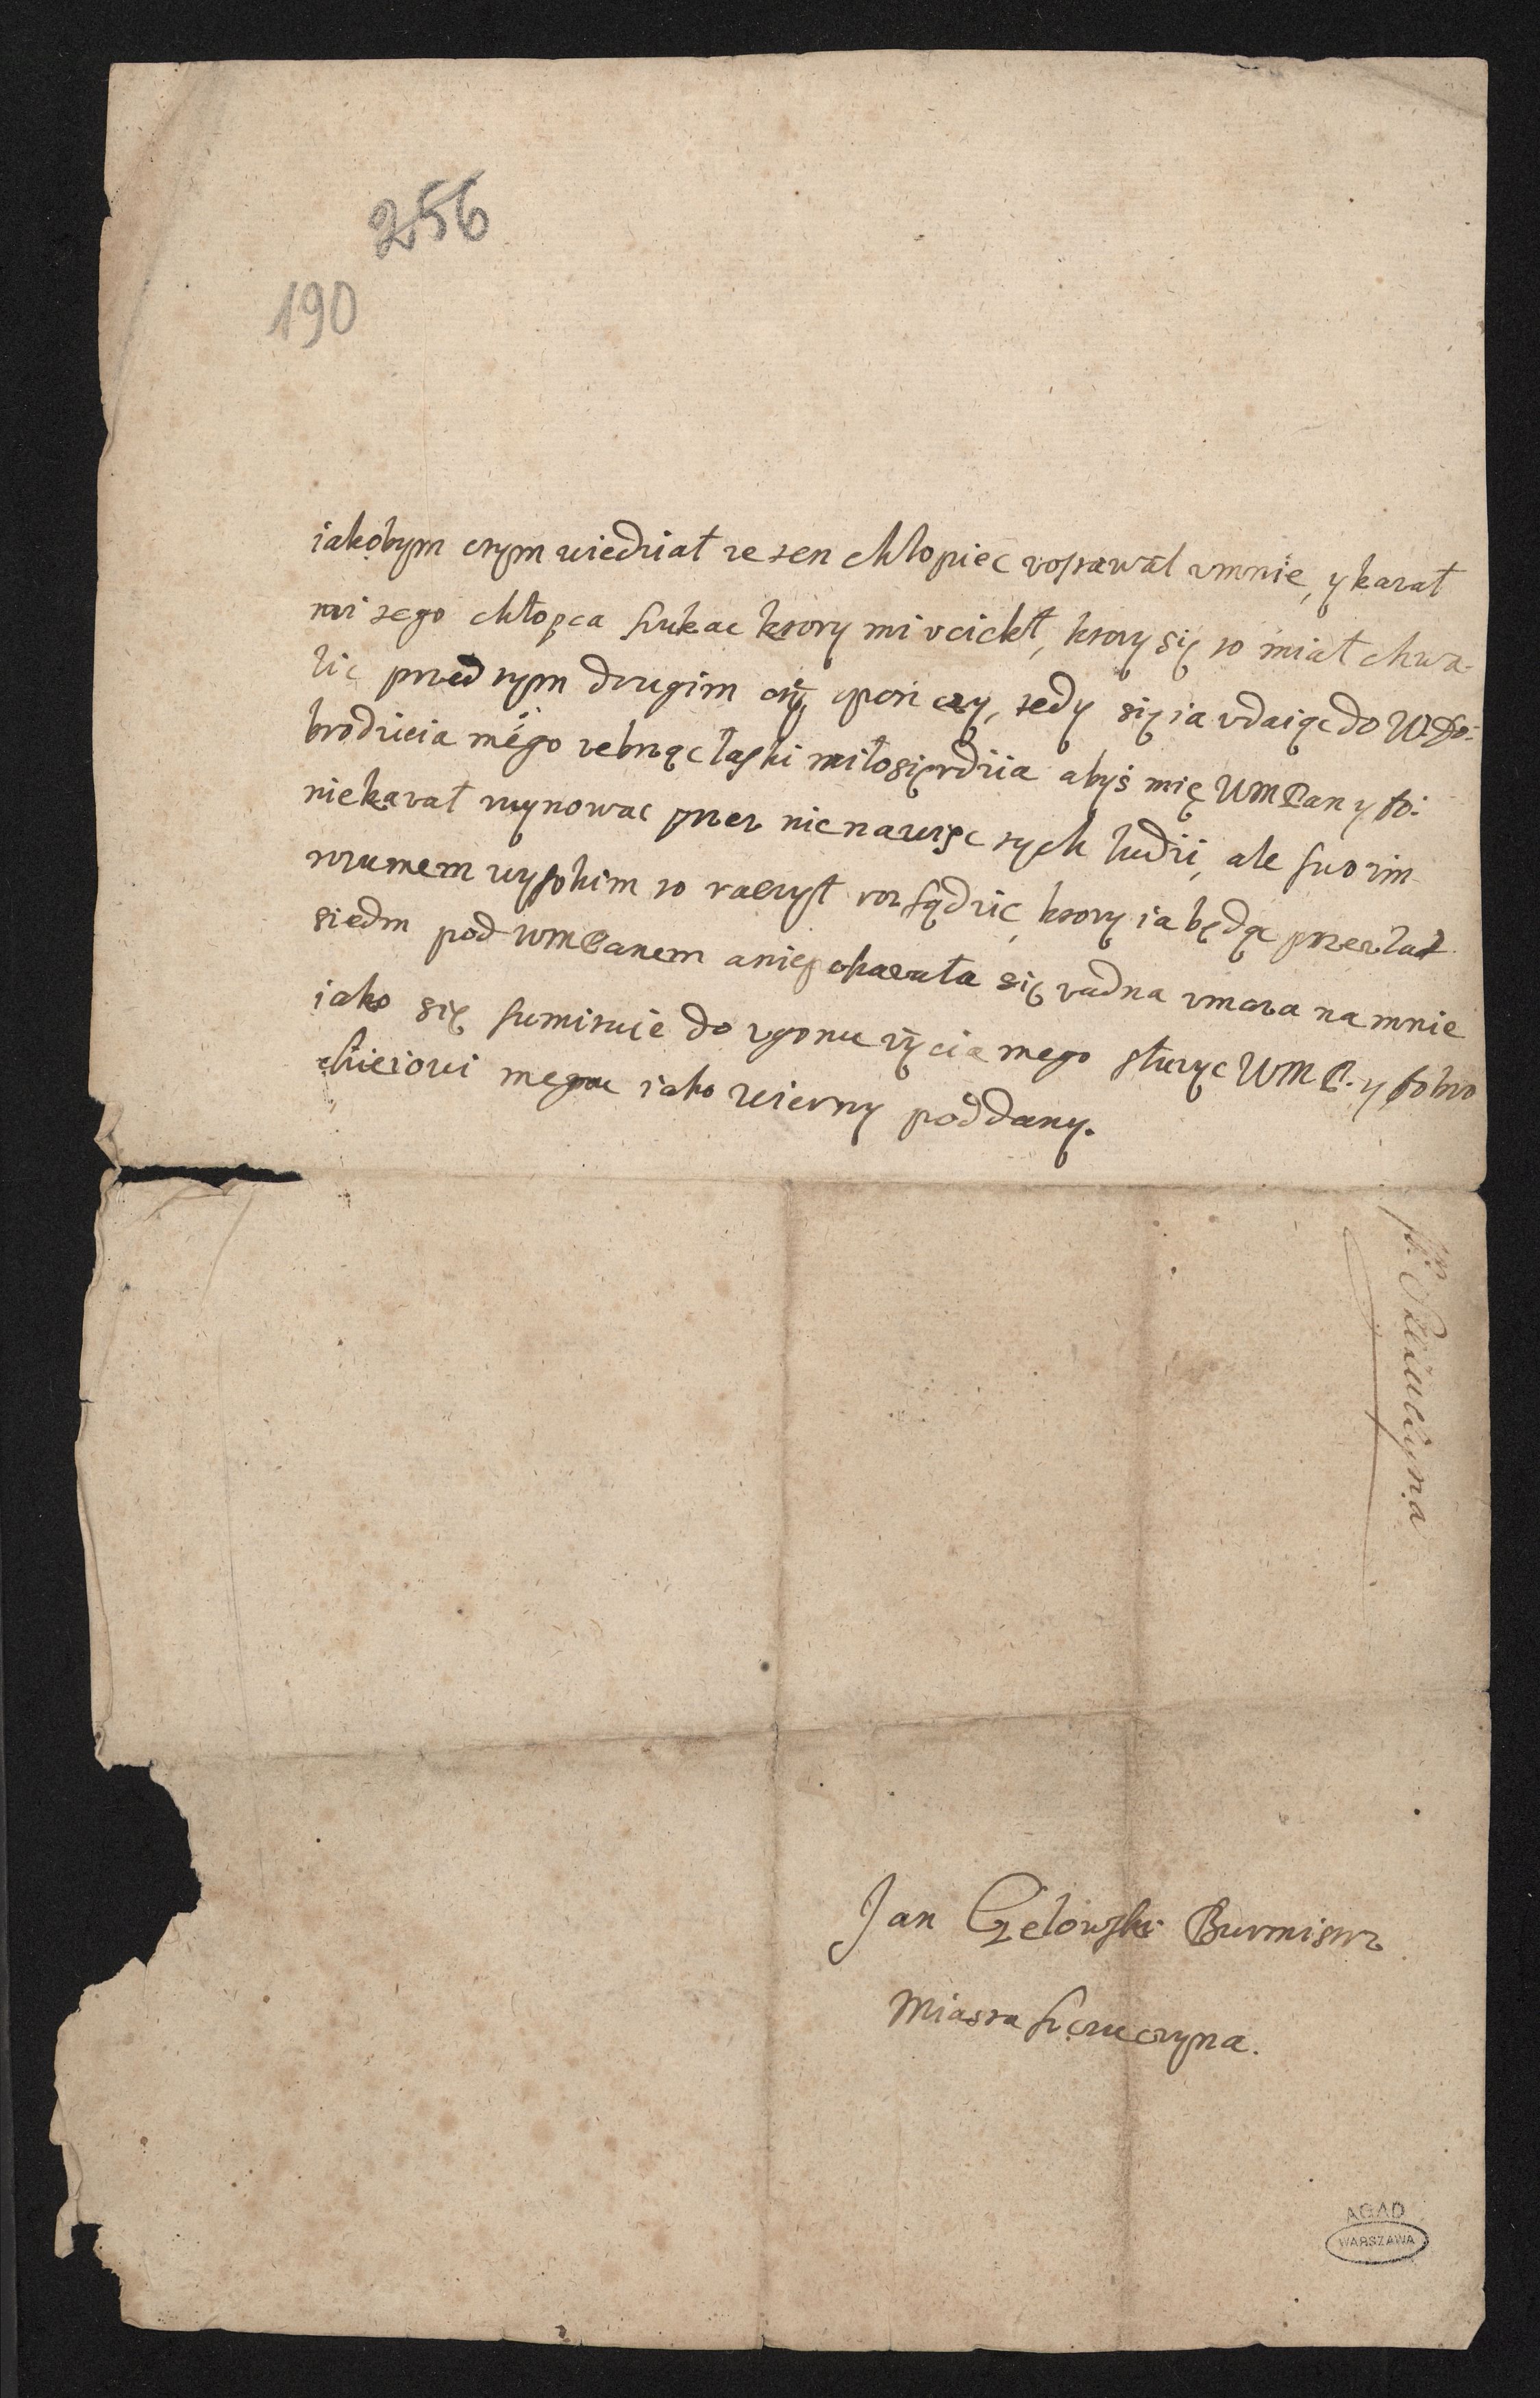 256
190
iakobym czym wiedział ze ten chłopiec zostawał v mnie, y kazał
mi tego chłopca szukac ktory mi vciekł, ktory się to miał chwa-
lic przed tym drugim o tÿ opon czy, tedy się ia vdaiąc do W. Do:
brodzieia mego zebrząc łaski miłosięrdzia abyś mię WMPan y Do:
niekazał ruynowac przez nienawisc tych ludzi, ale swoim
rozumem wysokim to raczył rozsądzic, ktory ia będąc przez lat
siedm pod WMPanem aniepokazała się zadna zmaza na mnie
iako się sumituie do zgonu zÿcia mego słuzyc WMP. y Dobro
dzieiowi memu iako wierny poddany.
Jan Czelowski Burmistrz
Miasta Szczuczyna.
AGAD
WARSZAWA